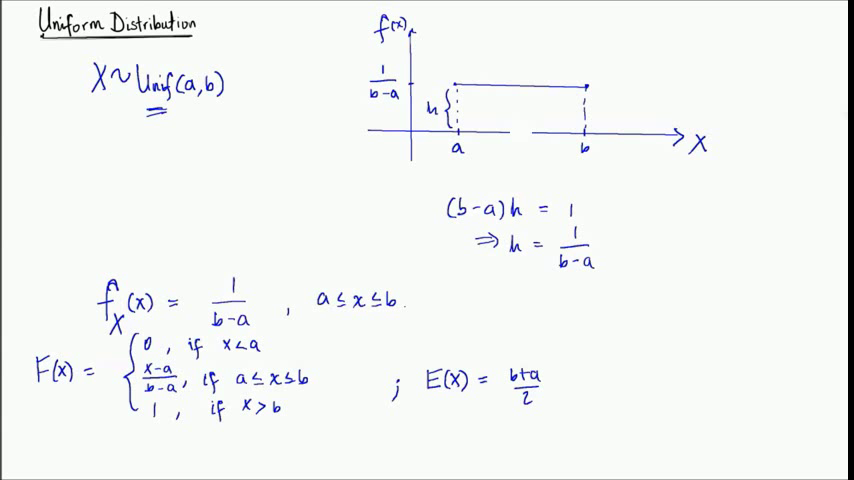 Uniform Distribution
X ~ Unif(a,b)
f(x)
1/(b-a)
h {
a
b
X
(b-a)h = 1
⇒ h = 1/(b-a)
f_X(x) = 1/(b-a) , a ≤ x ≤ b.
F(x) = { 0 , if x < a
(x-a)/(b-a) , if a ≤ x ≤ b
1 , if x > b
; E(X) = (b+a)/2